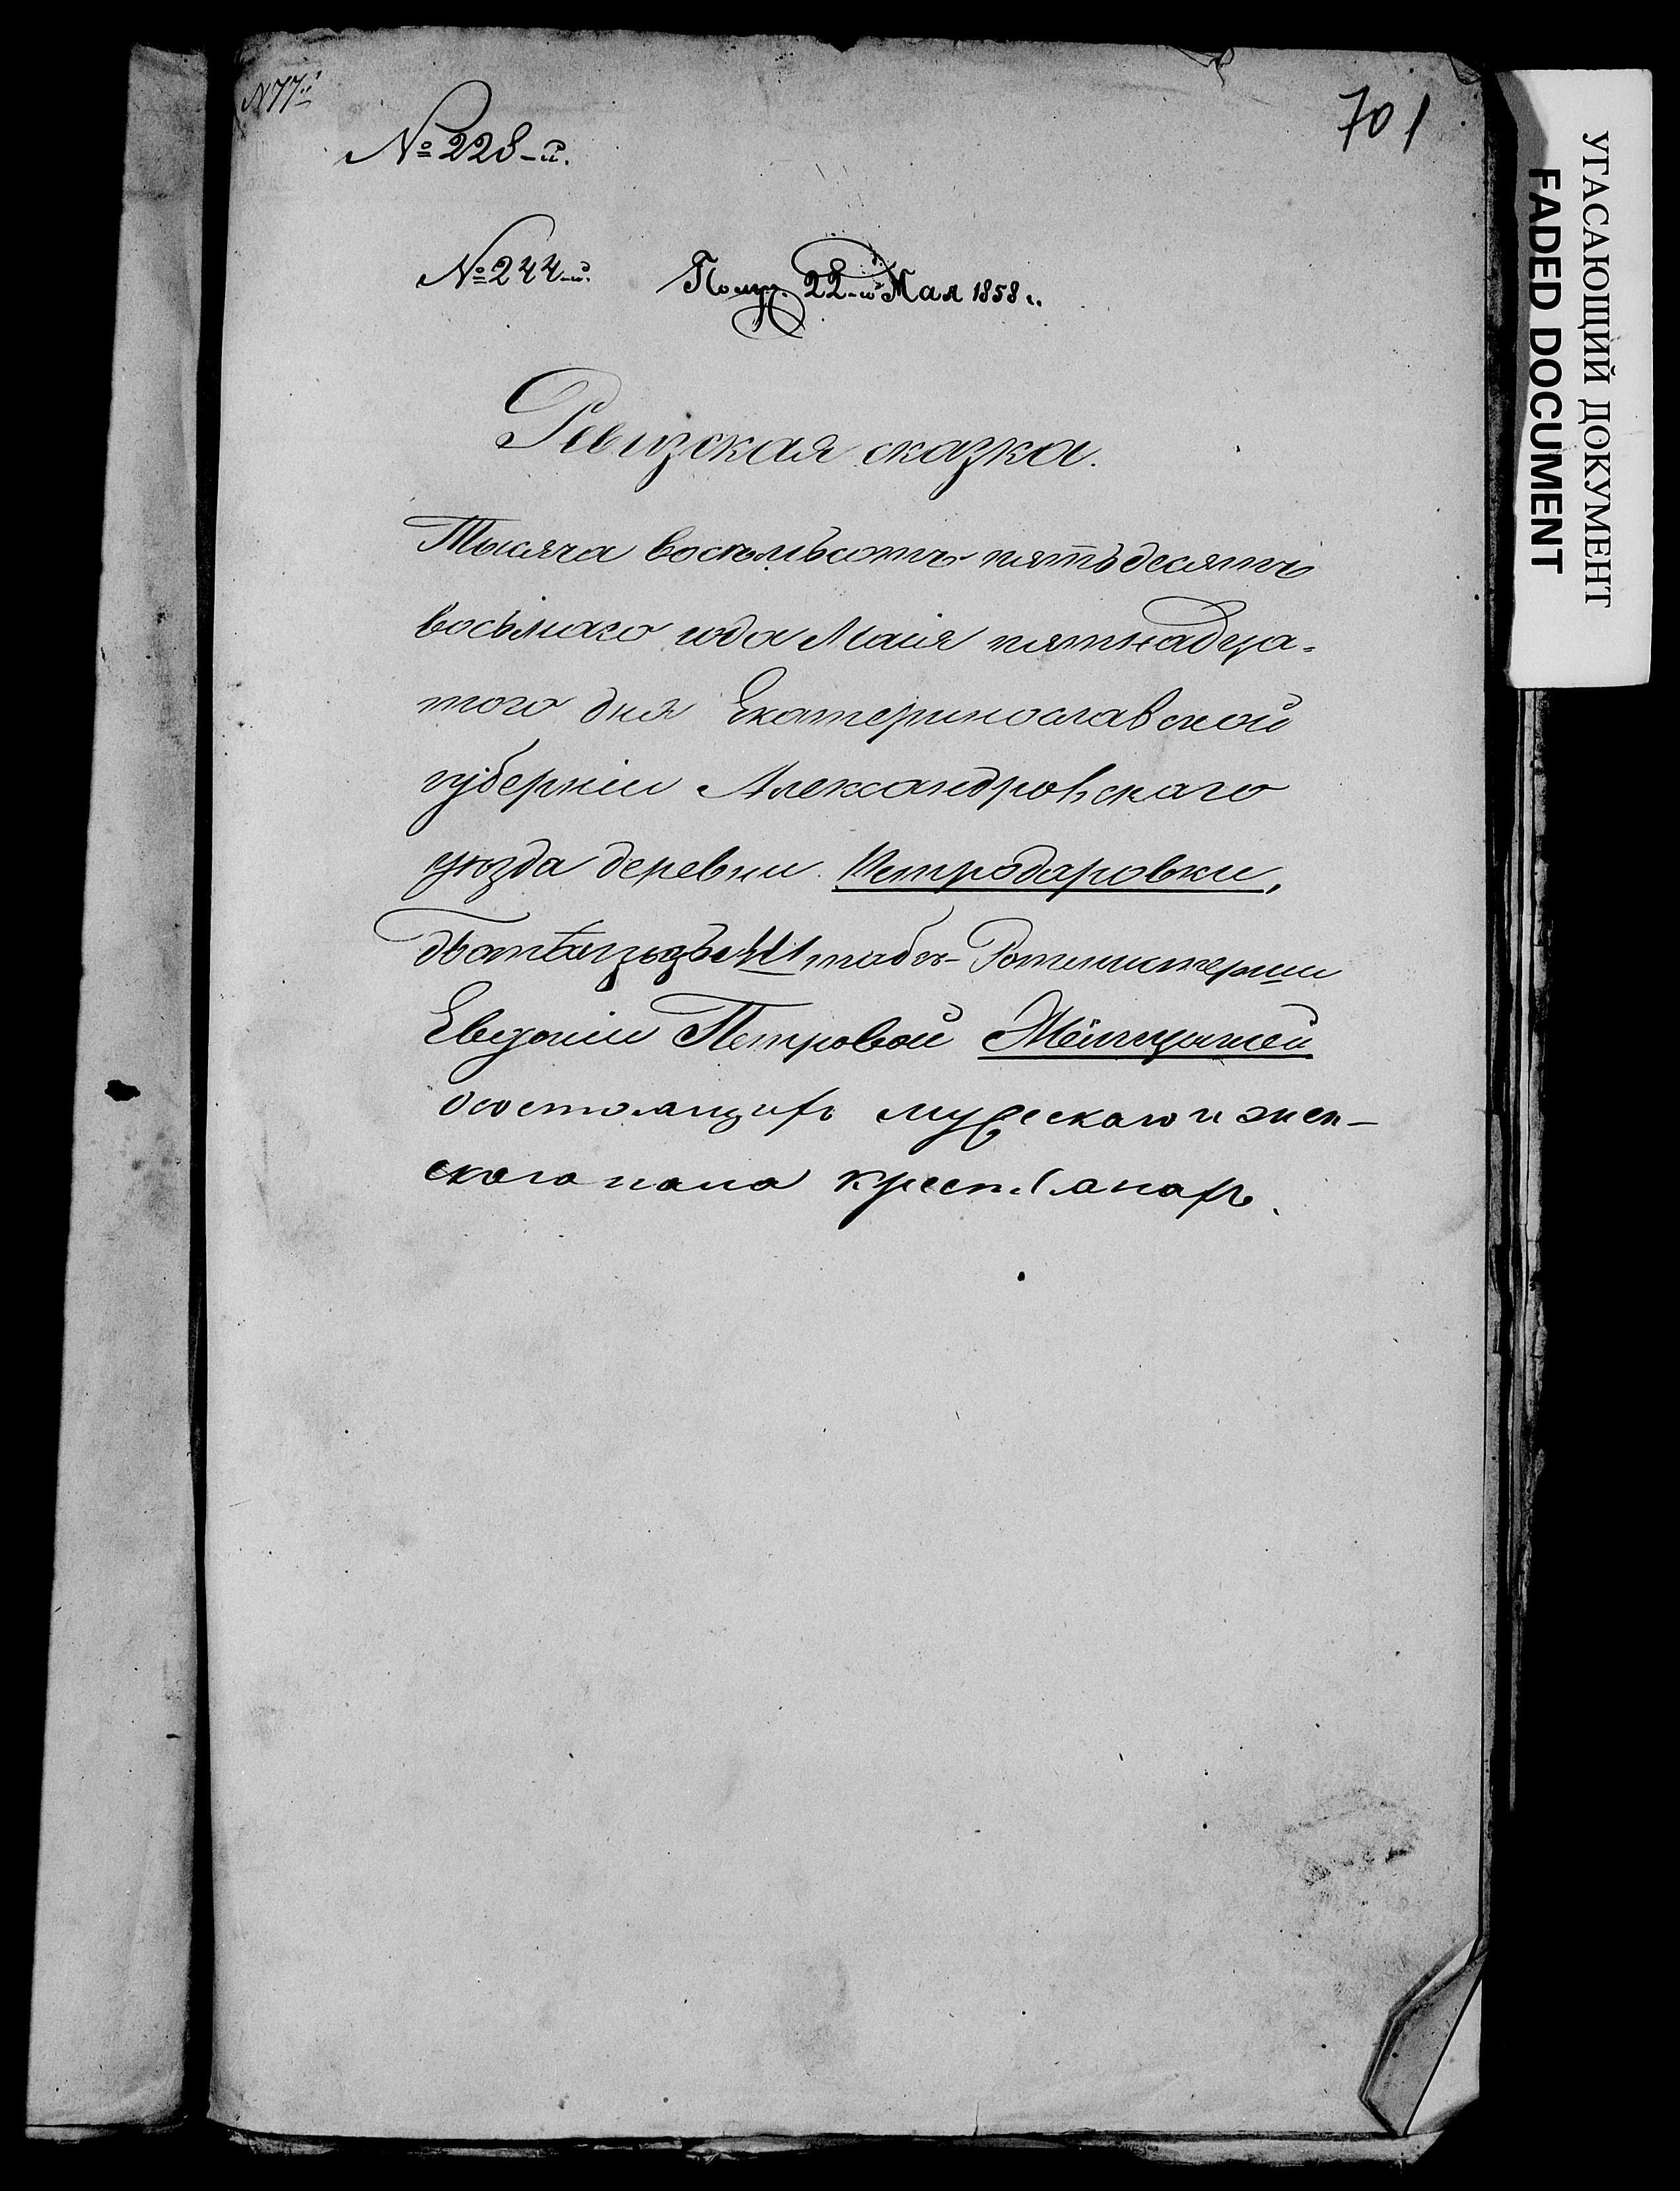 N 77й
701
№ 228-й.
№ 244-й. Получ. 22-го Мая 1858 г.
Ревизская сказка.
Тысяча восемьсотъ пятьдесятъ
восьмаго года Маія пятнадца-
того дня Екатеринославской
губерніи Александровскаго
уѣзда деревни Петродаровки,
Штабсъ-Ротмистерши
Евдокіи Петровой
о состоящихъ мужескаго и жен-
скаго пола крестьянахъ.
УГАСАЮЩИЙ ДОКУМЕНТ
FADED DOCUMENT